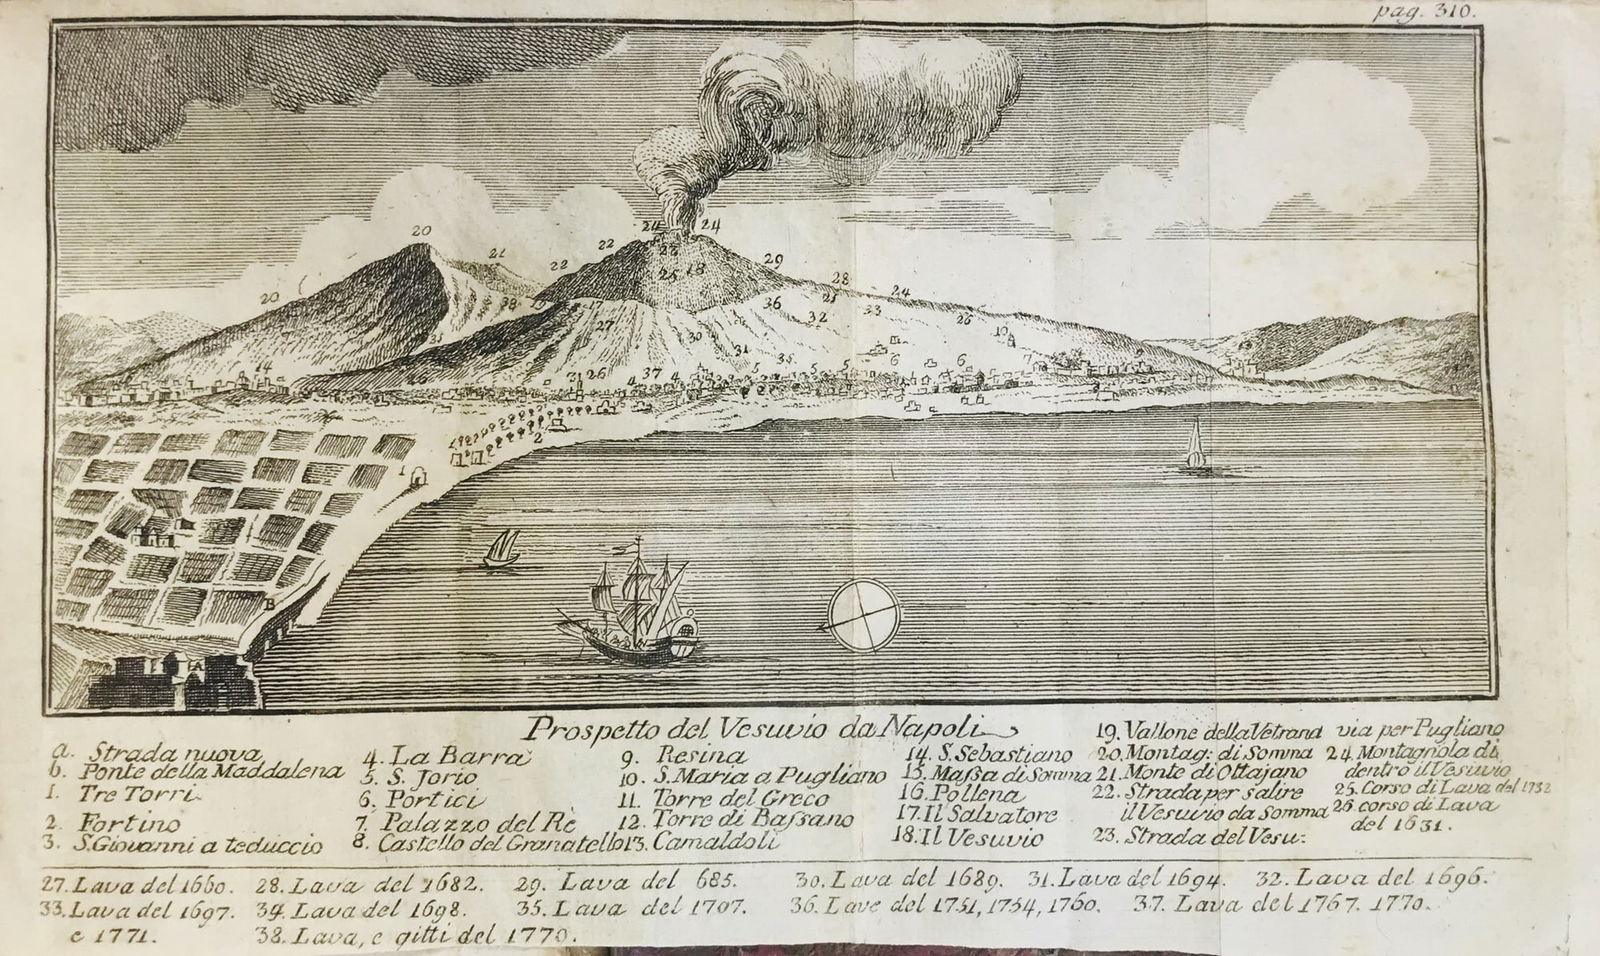 pag. 310.
20
21
20
22
22
24
24
23
25
18
29
28
24
36
21
32
33
26
10
38
19
17
27
30
31
35
37
26
14
3
4
4
5
5
5
6
6
7
2
1
B
A
Prospetto del Vesuvio da Napoli
a. Strada nuova
b. Ponte della Maddalena
1. Tre Torri
2. Fortino
3. S. Giovanni a teduccio
4. La Barra
5. S. Jorio
6. Portici
7. Palazzo del Rè
8. Castello del Granatello
9. Resina
10. S. Maria a Pugliano
11. Torre del Greco
12. Torre di Baſsano
13. Camaldoli
14. S. Sebastiano
15. Maſsa di Somma
16. Pollena
17. Il Salvatore
18. Il Vesuvio
19. Vallone della Vetrana
20. Montag: di Somma
21. Monte di Ottajano
22. Strada per salire
il Vesuvio da Somma
23. Strada del Vesu:
via per Pugliano
24. Montagnola di
dentro il Vesuvio
25. Corso di Lava del 1732
26. corso di Lava
del 1631.
27. Lava del 1660. 28. Lava del 1682. 29. Lava del 685. 30. Lava del 1689. 31. Lava del 1694. 32. Lava del 1696.
33. Lava del 1697. 34. Lava del 1698. 35. Lava del 1707. 36. Lave del 1751, 1754, 1760. 37. Lava del 1767. 1770.
e 1771. 38. Lava, e gitti del 1770.